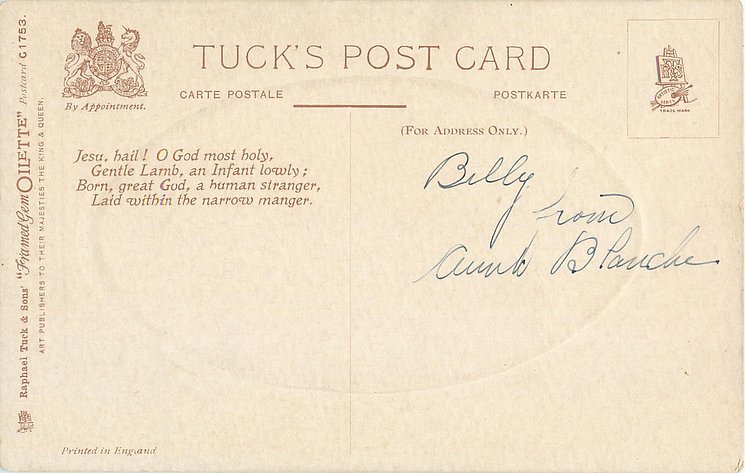 TUCK'S POST CARD
CARTE POSTALE
POSTKARTE
By Appointment.
(FOR ADDRESS ONLY.)
Jesu, hail! O God most holy,
Gentle Lamb, an Infant lowly;
Born, great God, a human stranger,
Laid within the narrow manger.
Billy
from
Aunt Blanche
Raphael Tuck & Sons' "Framed Gem OILETTE" Postcard C1753.
ART PUBLISHERS TO THEIR MAJESTIES THE KING & QUEEN.
Printed in England
TRADE MARK